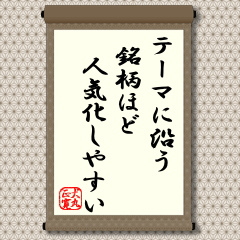 テーマに沿う
銘柄ほど
人気化しやすい